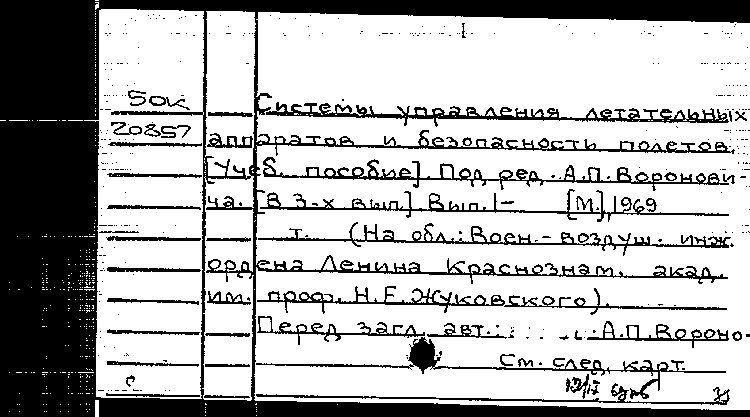 1
50к Системы управления летательных
20857 аппаратов и безопасности полетов.
[Учеб. пособие]. Под ред. А.П. Воронови-
ча. [В 3-х вып]. Вып. 1- [М.], 1969
т. (На обл.: Воен.-воздуш. инж.
ордена Ленина Краснознам. акад.
им. проф. Н.Е. Жуковского).
Перед загл. авт.: А.П. Вороно-
См. след. карт.